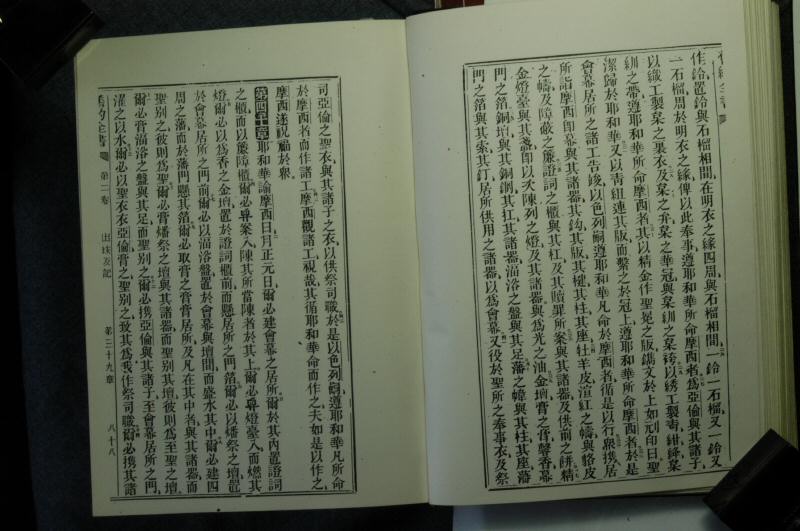 作鈴置鈴與石榴相間、在明衣之緣四周與石榴相間、一鈴一石榴又一鈴又
一石榴周於明衣之緣俾以此奉事、遵耶和華所命摩西者、爲亞倫與其諸子、
以織工製枲之裏衣及枲之弁、枲之華冠與枲紃枲之袴、以繡工製毒紺縩枲
紃之帶、遵耶和華所命摩西者、其以精金作聖冕之版、鐫文於上如刓印曰聖
潔歸於耶和華又以青組連其版而繫之於冠上、遵耶和華所命摩西者、於是
會幕居所之諸工告竣、以色列嗣遵耶和華凡命於摩西者循是以行、衆攜居
所詣摩西、卽幕與其諸器、其鈎其版其楗其柱其座、牡羊皮渲紅之幬與貉皮
之幬及障蔽之簾、證詞之櫃與其杠及其贖罪所、案與其諸器及供前之餅、精
金燈臺與其盞、卽以次陳列之燈及其諸器、與爲光之油、金壇膏之膏、馨香、幕
門之箔、銅壇與其銅䋄其杠其諸器、湢洛之盤與其足、藩之幃與其柱其座、藩
門之箔與其索其釘、居所供用之諸器以爲會幕、又役於聖所之奉事衣、及祭
司亞倫之聖衣、與其諸子之衣、以供祭司職、於是以色列嗣遵耶和華凡所命
於摩西者而作諸工、摩西觀諸工、視哉、其循耶和華命而作之、夫如是以作之、
摩西遂祝福於衆、
第四十章 耶和華諭摩西曰、月正元日爾必建會幕之居所、爾於其內置證詞
之櫃而以簾障櫃、爾必舁案入陳其所當陳者於其上、爾必舁燈臺入而燃其
燈、爾必以爲香之金壇置於證詞櫃前、而懸居所之門箔、爾必以燔祭之壇置
於會幕居所之門前、爾必以湢洛盤置於會幕與壇間、而盛水其中、爾必建四
周之藩、而於藩門懸其箔、爾必取膏之膏、膏居所及凡在其中者、與其諸器而
聖別之、彼則爲聖、爾必膏燔祭之壇與其諸器、而聖別其壇、彼則爲至聖之壇、
爾必膏湢洛之盤與其足、而聖別之、爾必攜亞倫與其諸子至會幕居所之門、
濯之以水、爾必以聖衣衣亞倫、膏之聖別之、致其爲我作祭司職、爾必攜其諸
第二卷 出埃及記 第三十九章 八十八